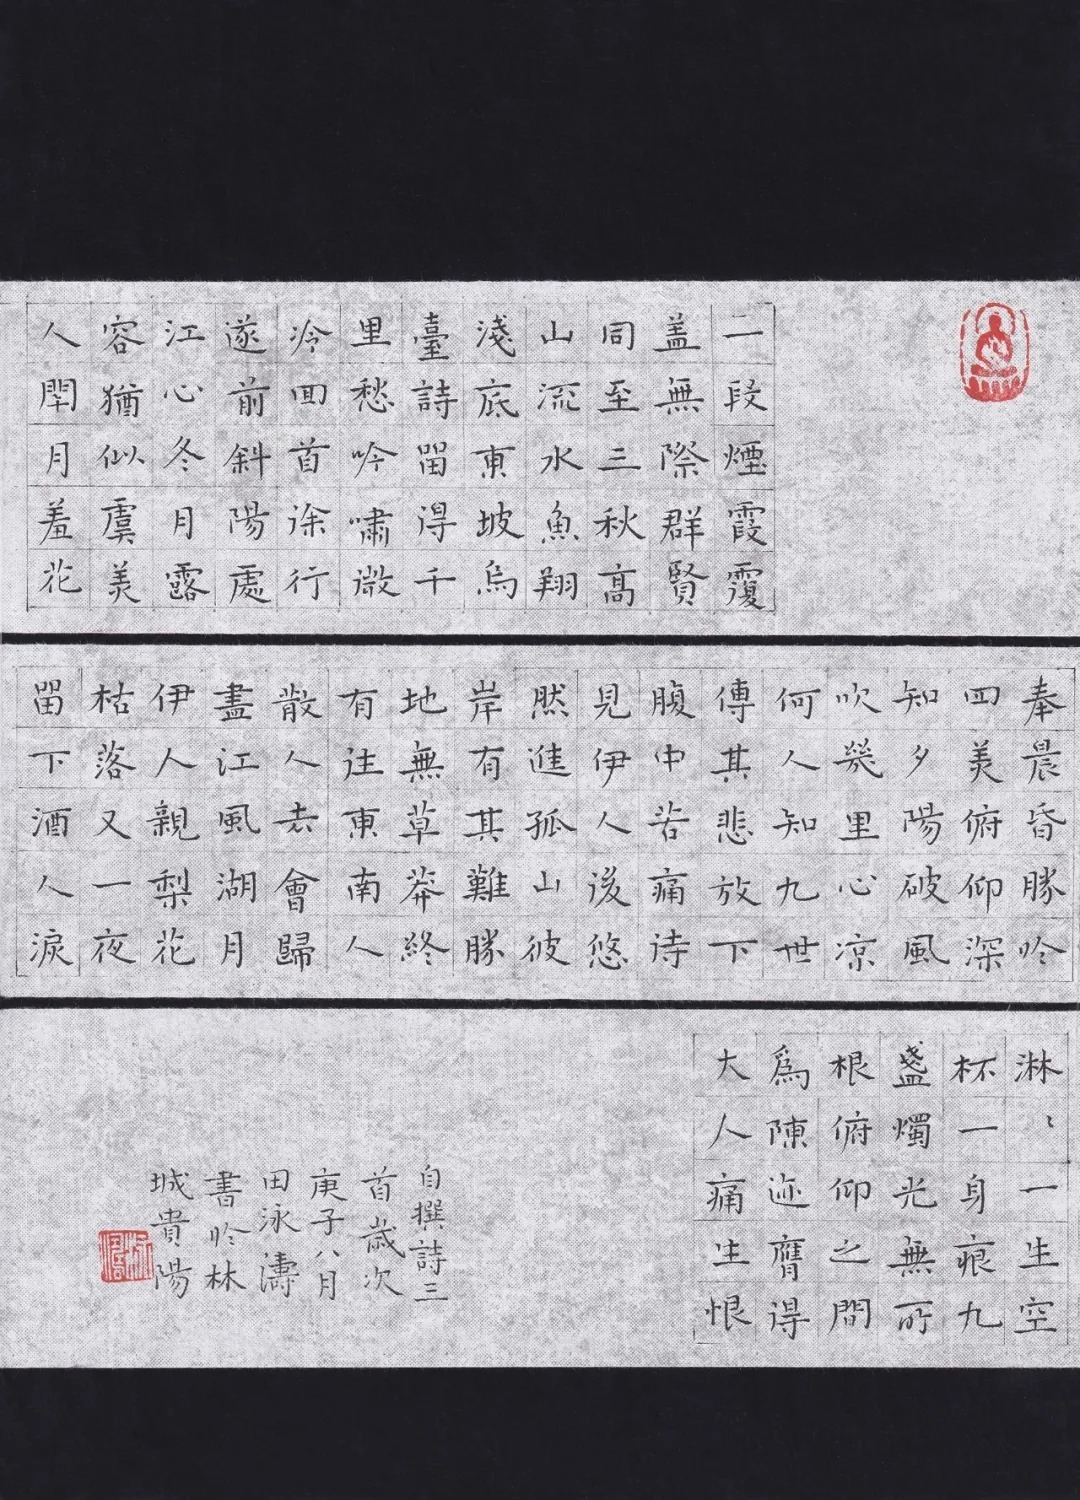 二段煙霞覆
蓋無際群賢
同至三秋高
山流水魚翔
淺底東坡烏
臺詩留得千
里愁吟嘯微
冷回首徐行
遂前斜陽處
江心冬月露
容猶似虞美
人閉月羞花
奉晨昏勝吟
四美俯仰深
知夕陽破風
吹幾里心凉
何人知九世
傳其悲放下
腹中苦痛诗
見伊人後悠
然進孤山彼
岸有其難勝
地無草莽終
有往東南人
散人去會歸
盡江風湖月
伊人親梨花
枯落又一夜
留下酒人淚
淋〻一生空
杯一身痕九
盞燭光無所
根俯仰之間
爲陳迹膺得
大人痛生恨
自撰詩三
首歲次
庚子八月
田泳濤
書於林
城貴陽